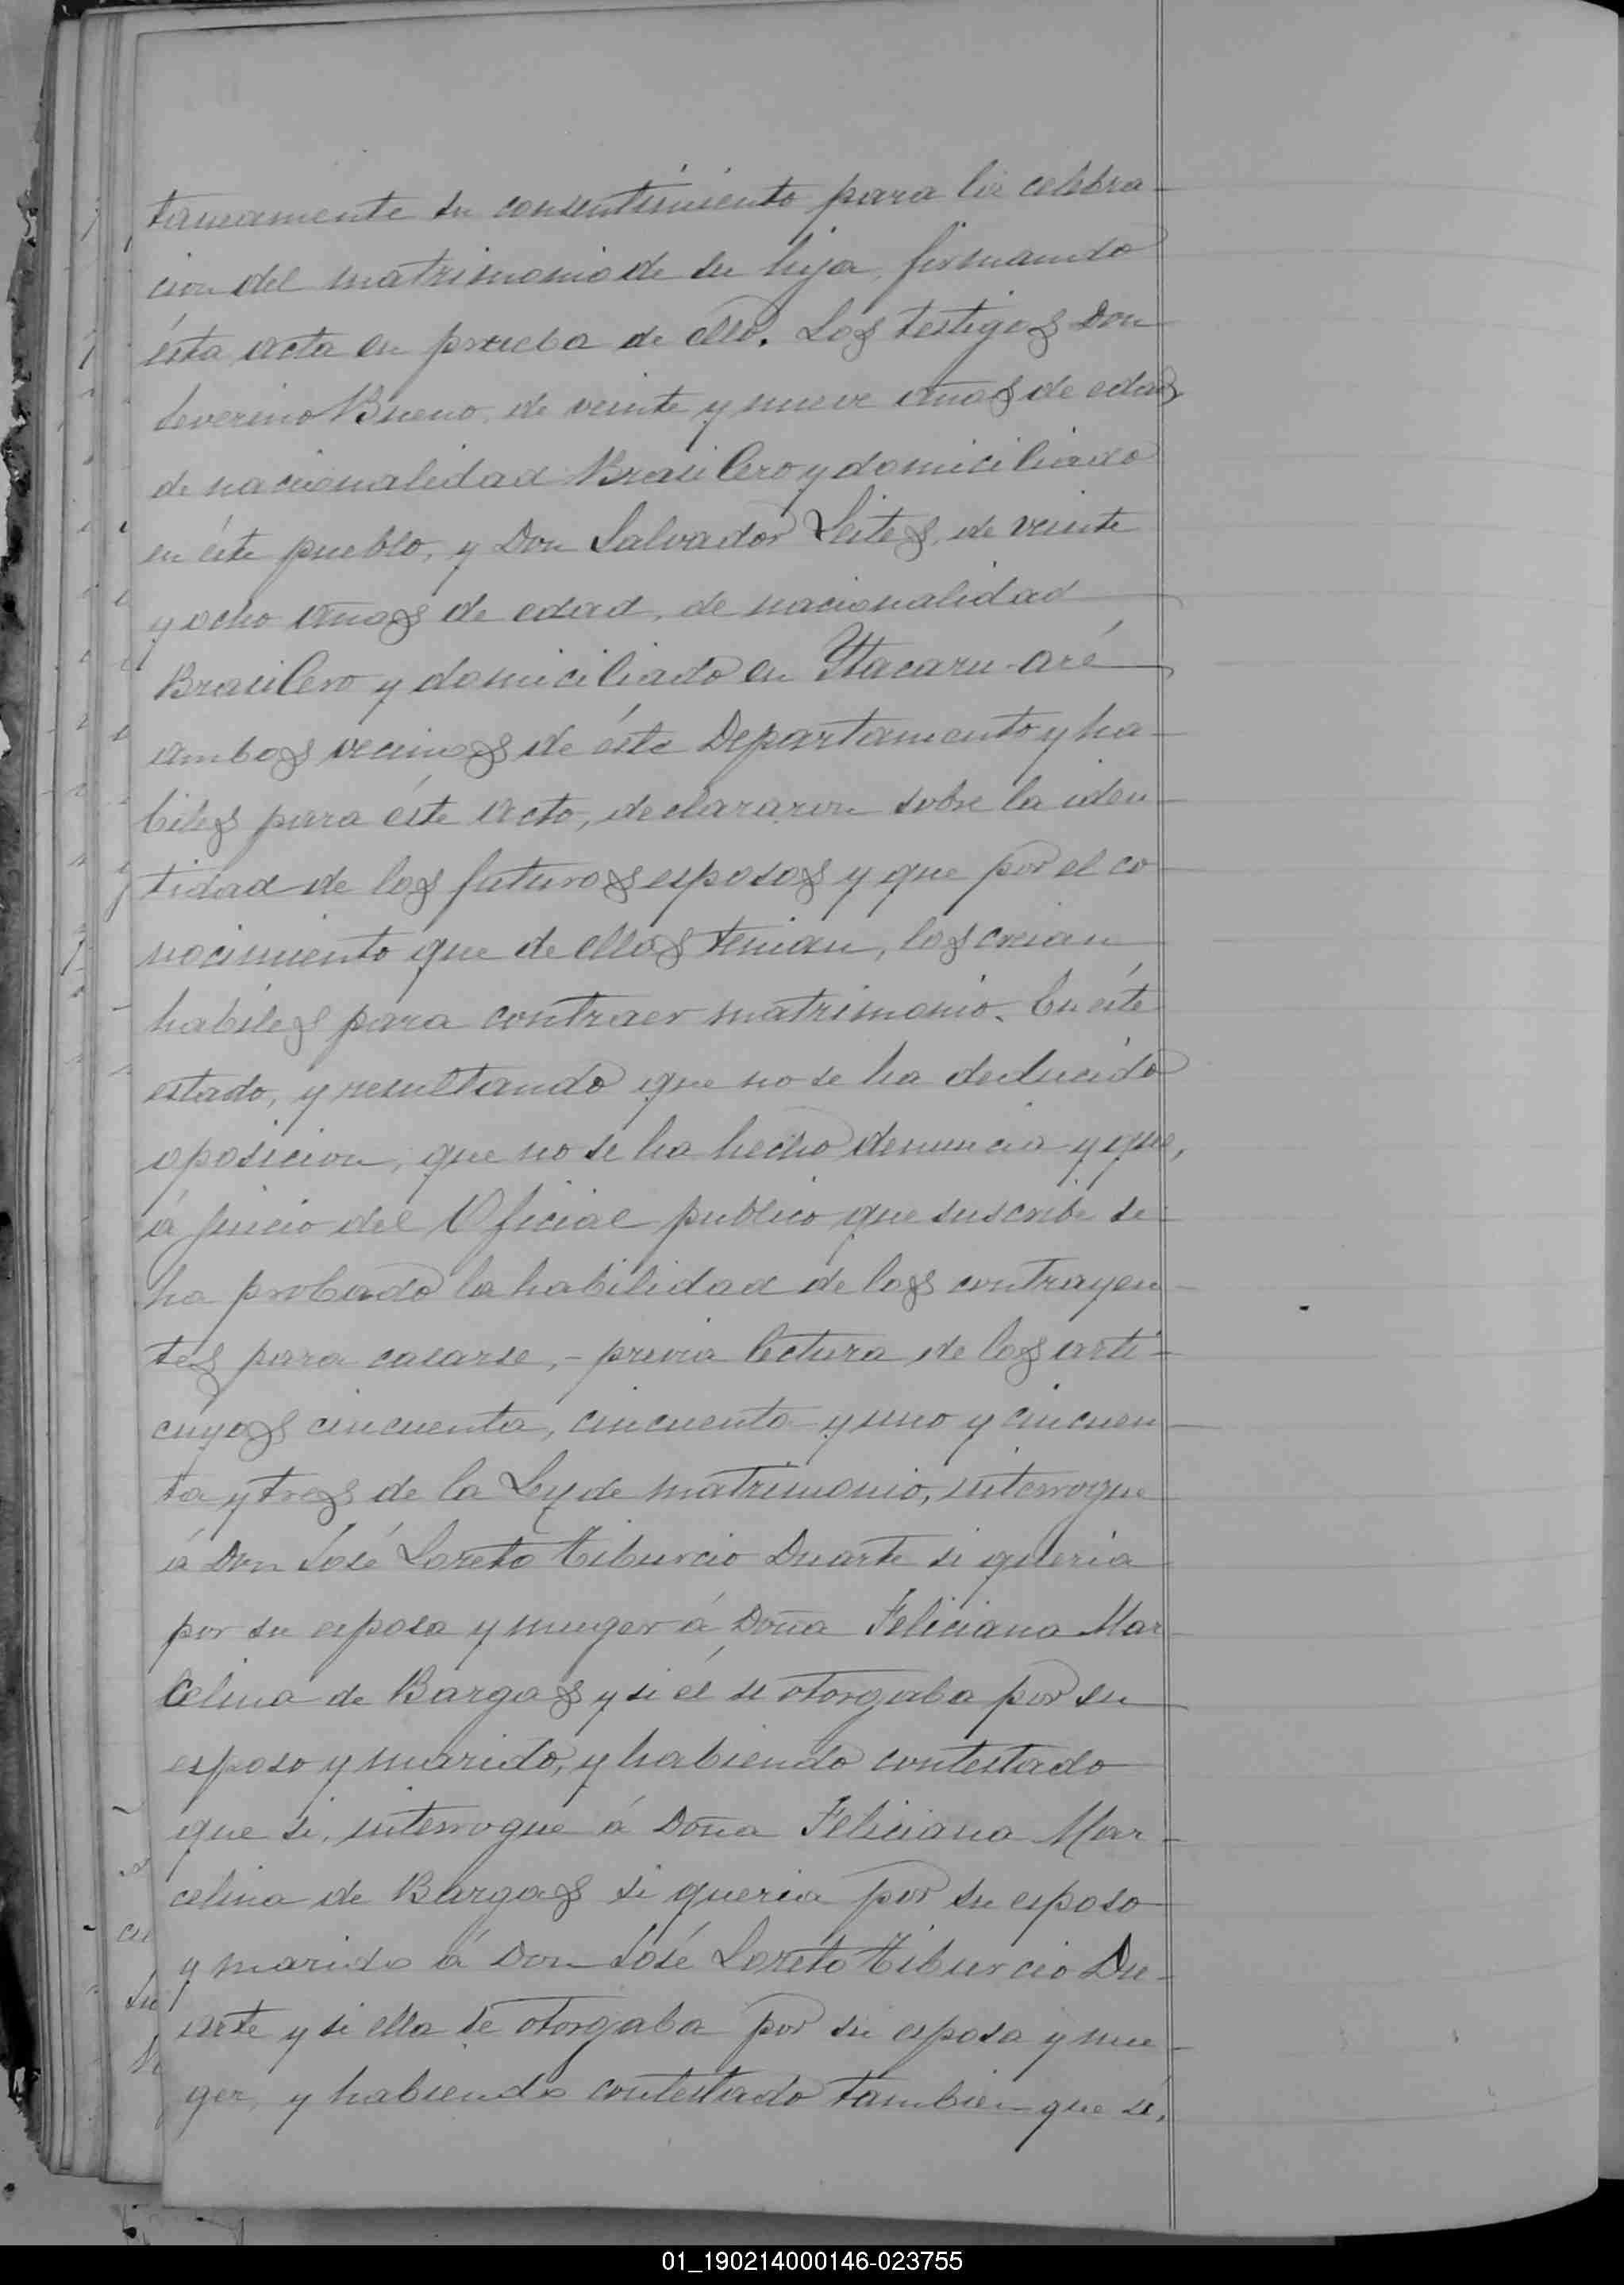 taneamente su consentimiento para la celebra-
cion del matrimonio de su hija, firmando
ésta acta en prueba de ello. Los testigos Don
Severino Bueno, de veinte y nueve años de edad,
de nacionalidad Brasilero y domiciliado
en éste pueblo, y Don Salvador Leites, de veinte
y ocho años de edad, de nacionalidad
Brasilero y domiciliado en Ytacaru-aré
ambos vecinos de éste Departamento y ha-
biles para éste acto, declararon sobre la iden-
tidad de los futuros esposos y que por el co-
nocimiento que de ellos tenian, los creian
habiles para contraer matrimonio. En éste
estado, y resultando que no se ha deducido
oposicion, que no se ha hecho denuncia y que,
á juicio del Oficial publico que suscribe se
ha probado la habilidad de los contrayen-
tes para casarse, - previa lectura de los arti-
cuyos cincuenta, cincuenta y uno y cincuen-
ta y tres de la Ley de matrimonio, interrogue
á Don José Loreto Tiburcio Duarte si queria
por su esposa y muger á Doña Feliciana Mar-
Celina de Bargas y si él se otorgaba por su
esposo y marido, y habiendo contestado
que si, interrogue á Doña Feliciana Mar-
celina de Bargas si queria por su esposo
y marido á Don José Loreto Tiburcio Du-
arte y si ella se otorgaba por su esposa y mu-
ger, y habiendo contestado tambien que sí,
01_190214000146-023755